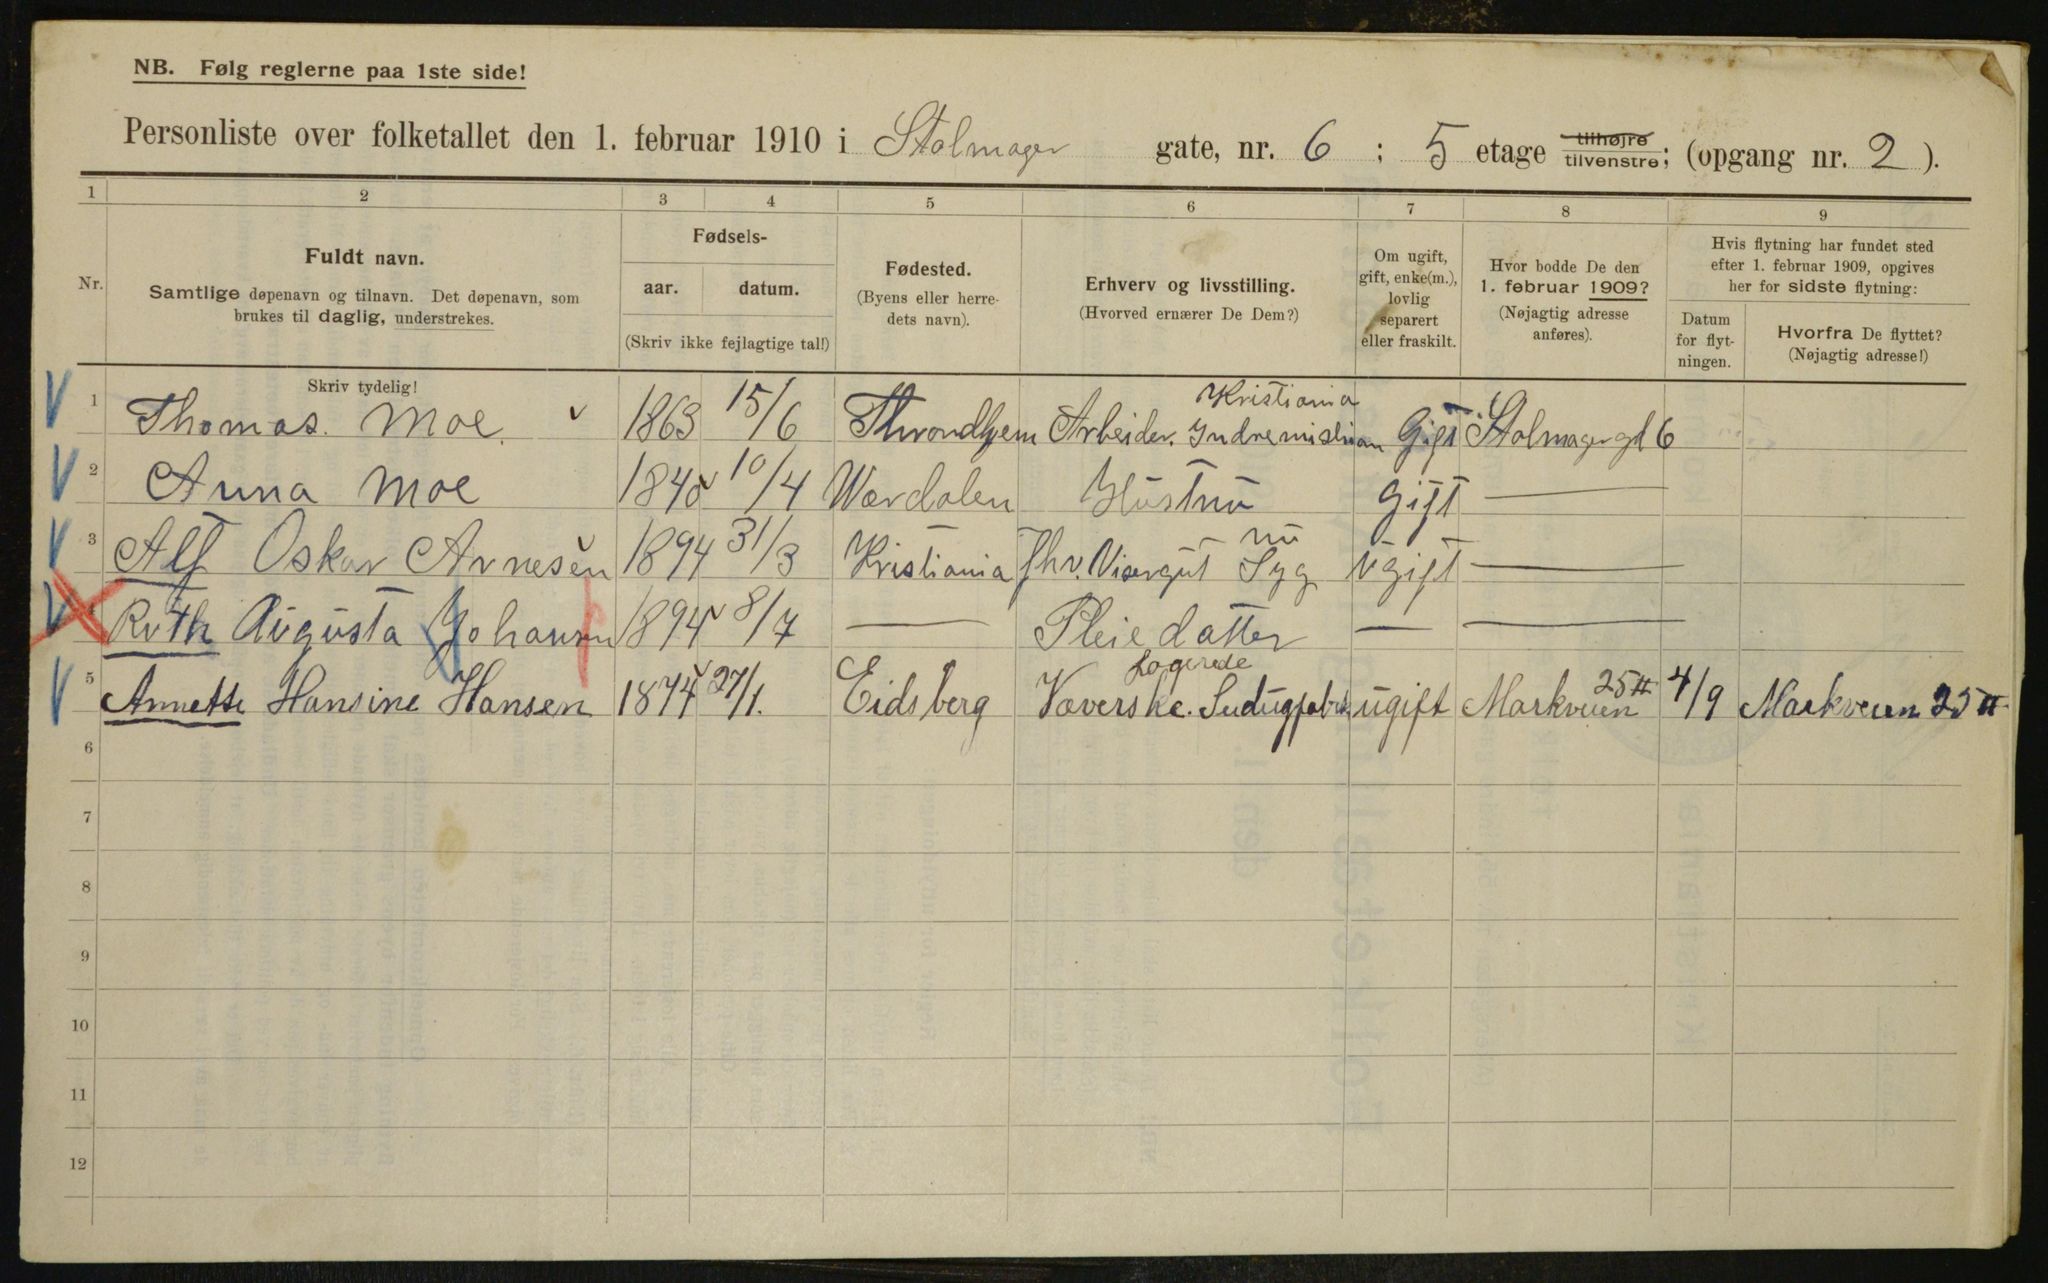 NB. Følg reglerne paa 1ste side!
Personliste over folketallet den 1. februar 1910 i Stolmager gate, nr. 6 ; 5 etage tilhøjre tilvenstre; (opgang nr. 2 ).
1 2 3 4 5 6 7 8 9
Nr.
Fuldt navn.
Samtlige døpenavn og tilnavn. Det døpenavn, som
brukes til daglig, understrekes.
Skriv tydelig!
Fødsels-
aar. datum.
(Skriv ikke fejlagtige tal!)
Fødested.
(Byens eller herre-
dets navn).
Erhverv og livsstilling.
(Hvorved ernærer De Dem?)
Om ugift,
gift, enke(m.),
lovlig
separert
eller fraskilt.
Hvor bodde De den
1. februar 1909?
(Nøjagtig adresse
anføres).
Hvis flytning har fundet sted
efter 1. februar 1909, opgives
her for sidste flytning:
Datum
for flyt-
ningen.
Hvorfra De flyttet?
(Nøjagtig adresse!)
1 Thomas. Moe. 1863 15/6 Throndhjem Arbeider. Kristiania Indremission Gift Stolmagergd 6
2 Anna Moe 1840 10/4 Værdalen Hustru Gift —
3 Alf Oskar Arnesen 1894 31/3 Kristiania fhv. Visergut nu Syg Ugift —
4 Ruth Augusta Johansen 1894 8/7 — Pleiedatter — —
5 Annette Hansine Hansen 1874 27/1. Eidsberg Væverske. ugift Markveien 25 II 4/9 Markveien 25 II
6
7
8
9
10
11
12